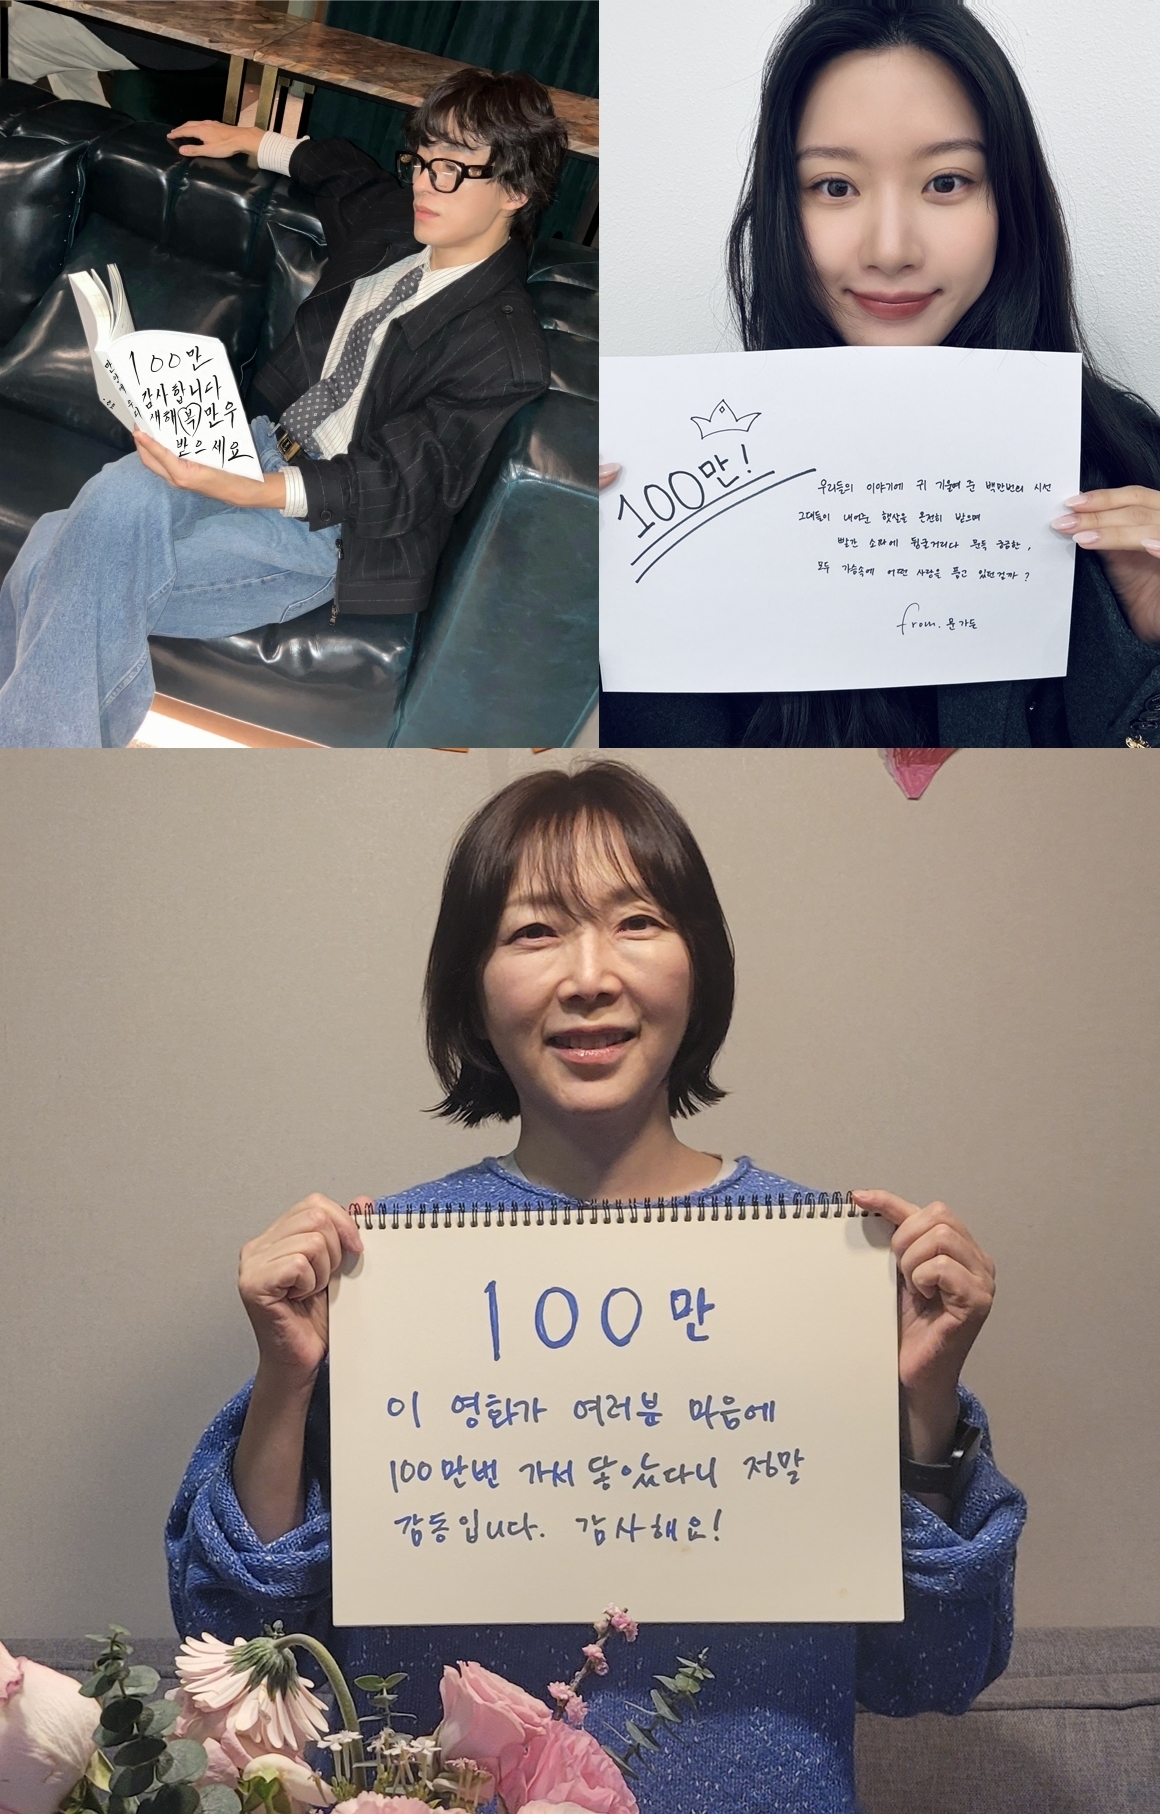 100만
감사합니다
새해 복 만우
받으세요
100만!
우리들의 이야기에 귀 기울여 준 백만번의 시선
그대들이 내어준 햇살을 온전히 받으며
빨간 소파에 뒹굴거리다 문득 궁금한,
모두 가슴속에 어떤 사랑을 품고 있던걸까?
from. 문가든
100만
이 영화가 여러분 마음에
100만번 가서 닿았다니 정말
감동입니다. 감사해요!